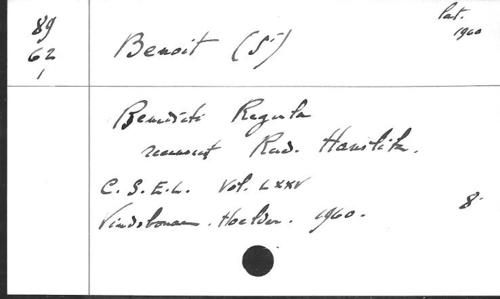 89
62
1
lat.
1960
Benoit (St)
Benedicti Regula
recensuit Rud. Hanslik.
C. S. E. L. Vol. LXXV
Vindobonae. Hoelder. 1960. 8°